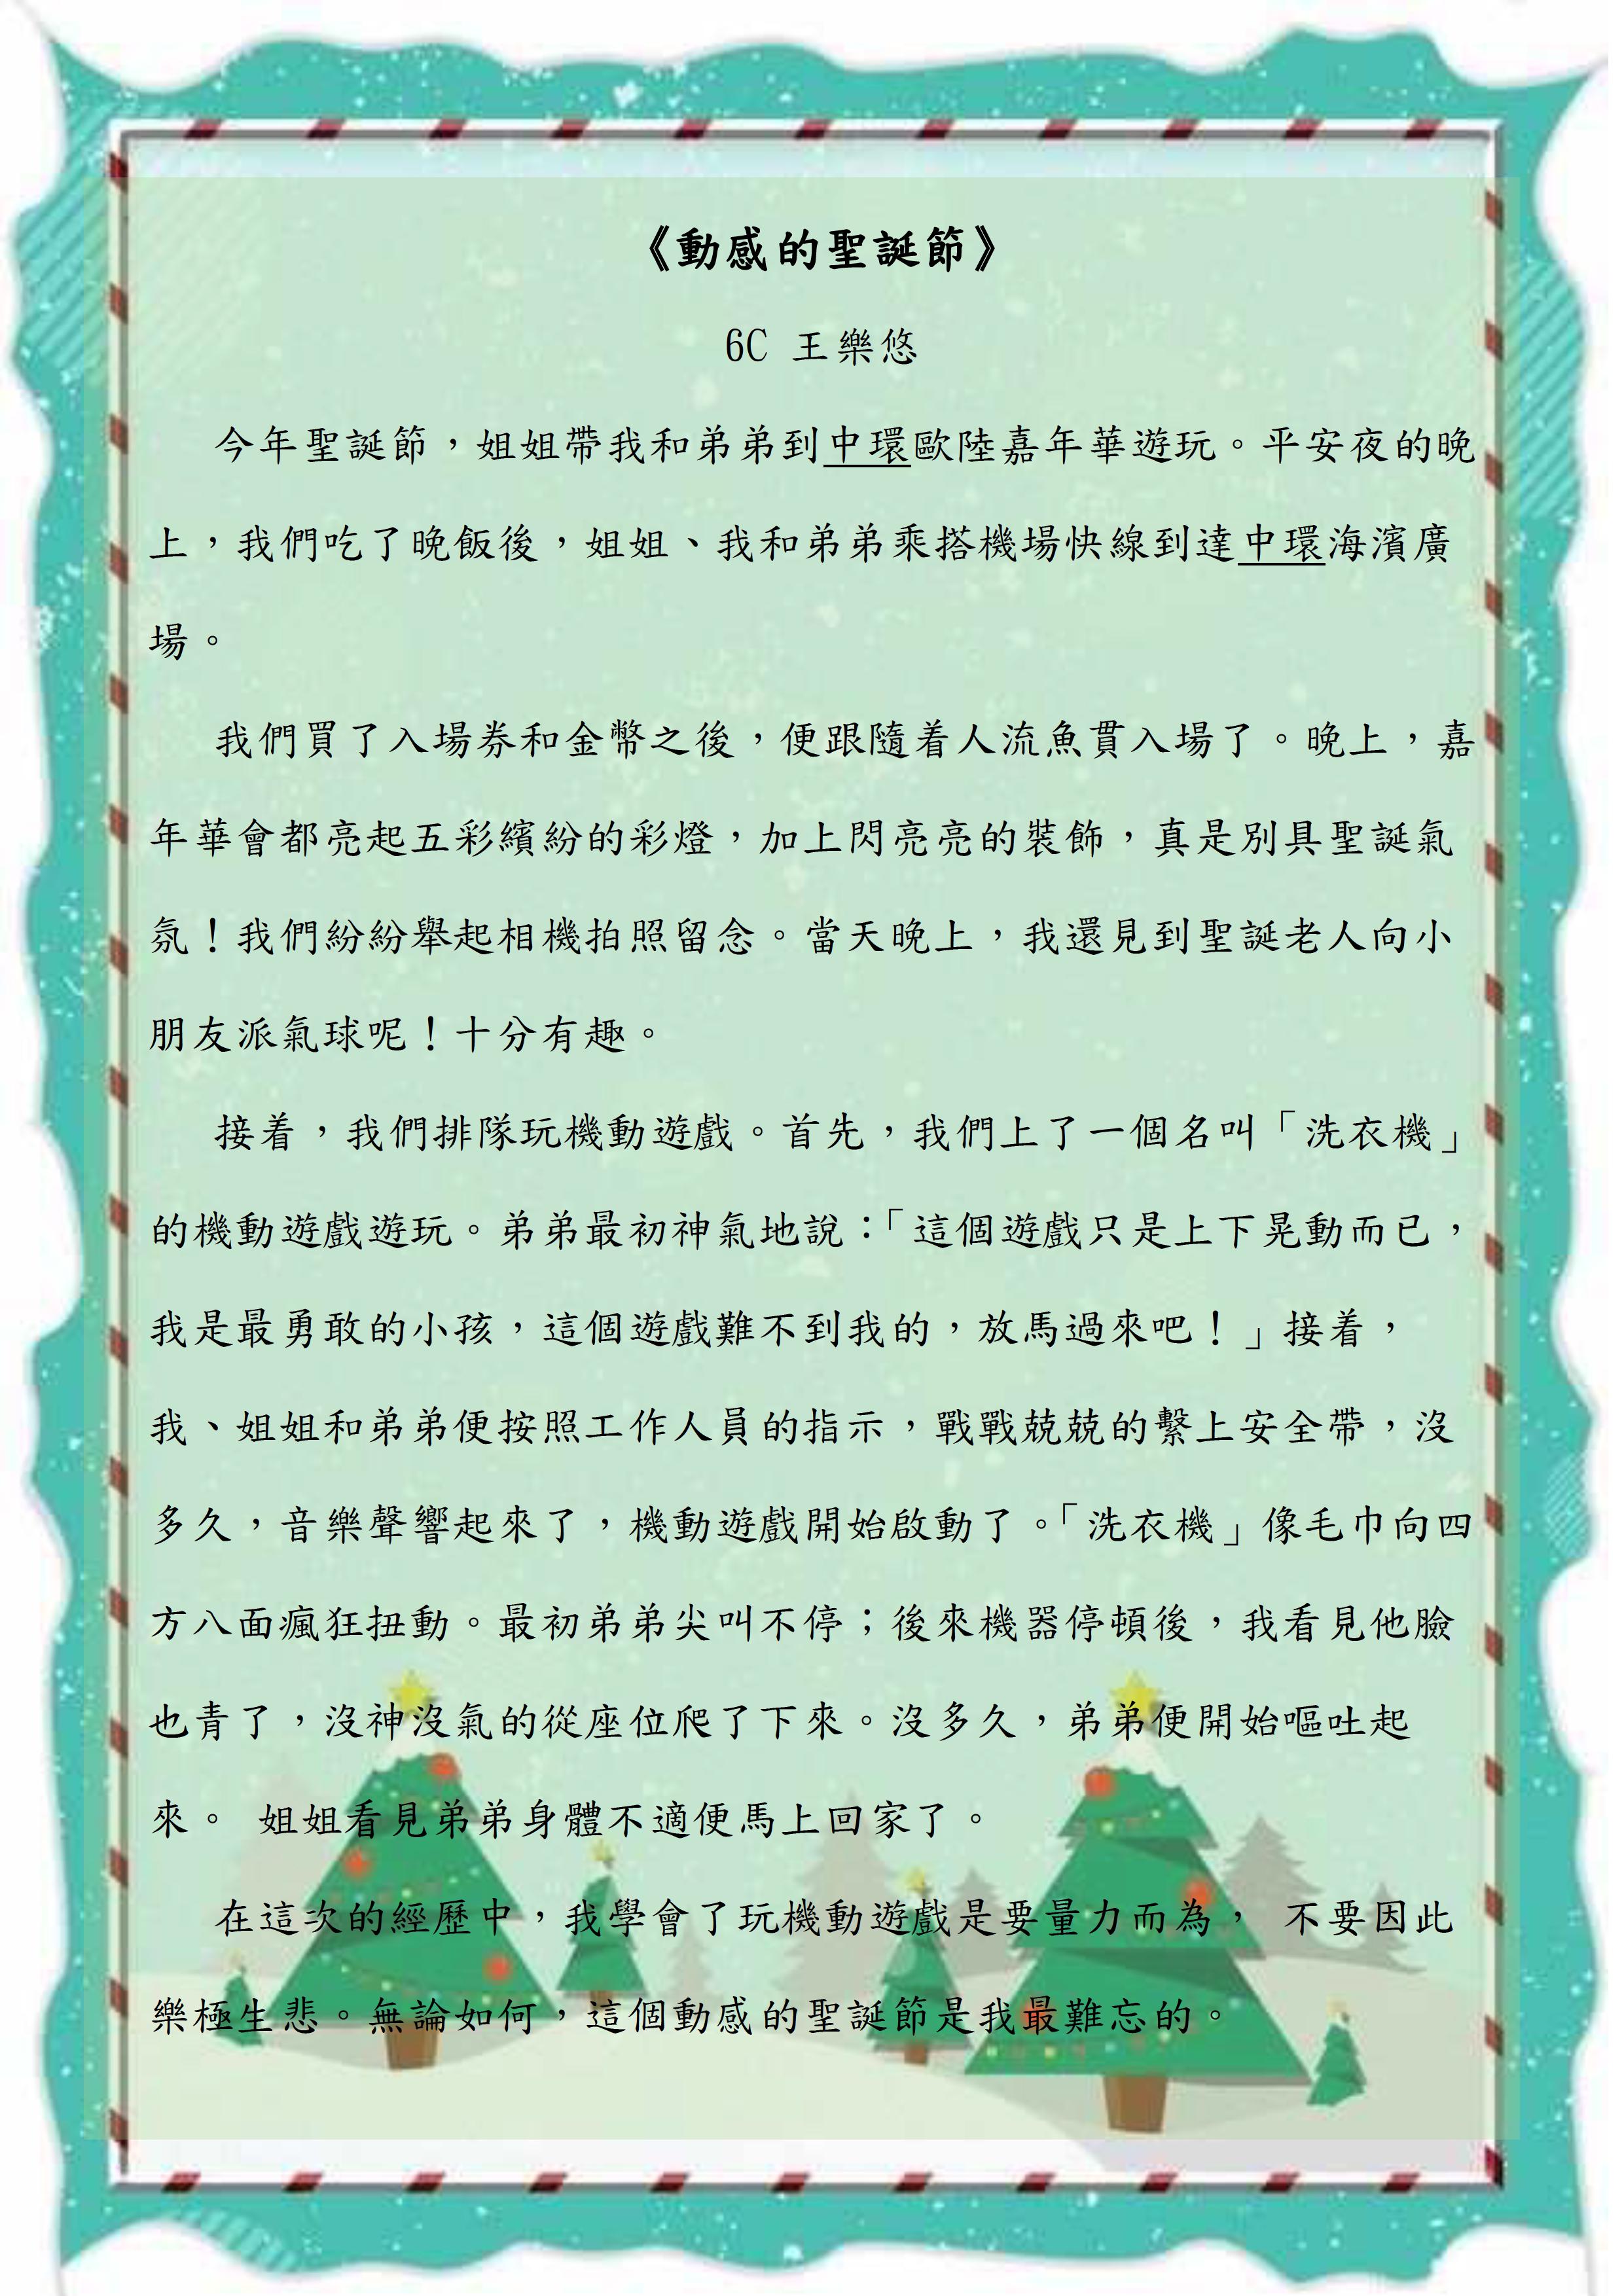 《動感的聖誕節》
6C 王樂悠
今年聖誕節，姐姐帶我和弟弟到中環歐陸嘉年華遊玩。平安夜的晚
上，我們吃了晚飯後，姐姐、我和弟弟乘搭機場快線到達中環海濱廣
場。
我們買了入場券和金幣之後，便跟隨着人流魚貫入場了。晚上，嘉
年華會都亮起五彩繽紛的彩燈，加上閃亮亮的裝飾，真是別具聖誕氣
氛！我們紛紛舉起相機拍照留念。當天晚上，我還見到聖誕老人向小
朋友派氣球呢！十分有趣。
接着，我們排隊玩機動遊戲。首先，我們上了一個名叫「洗衣機」
的機動遊戲遊玩。弟弟最初神氣地說：「這個遊戲只是上下晃動而已，
我是最勇敢的小孩，這個遊戲難不到我的，放馬過來吧！」接着，
我、姐姐和弟弟便按照工作人員的指示，戰戰兢兢的繫上安全帶，沒
多久，音樂聲響起來了，機動遊戲開始啟動了。「洗衣機」像毛巾向四
方八面瘋狂扭動。最初弟弟尖叫不停；後來機器停頓後，我看見他臉
也青了，沒神沒氣的從座位爬了下來。沒多久，弟弟便開始嘔吐起
來。 姐姐看見弟弟身體不適便馬上回家了。
在這次的經歷中，我學會了玩機動遊戲是要量力而為， 不要因此
樂極生悲。無論如何，這個動感的聖誕節是我最難忘的。